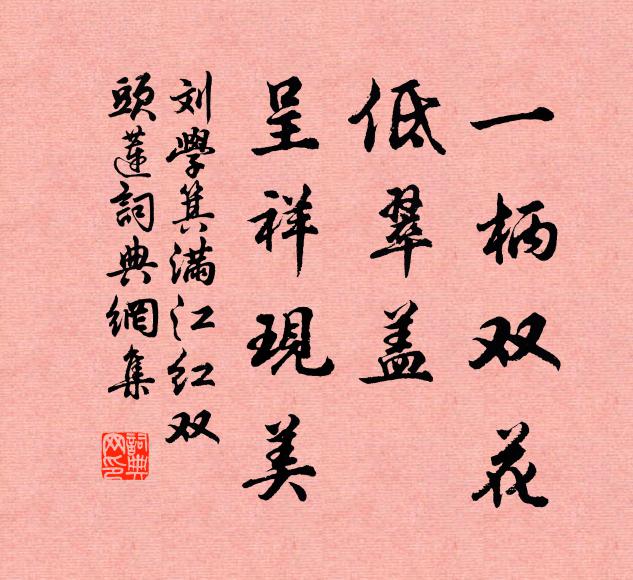 一柄双花
低翠盖
呈祥現美
刘學箕满江红双
頭蓮詞典網集
詞典
网印